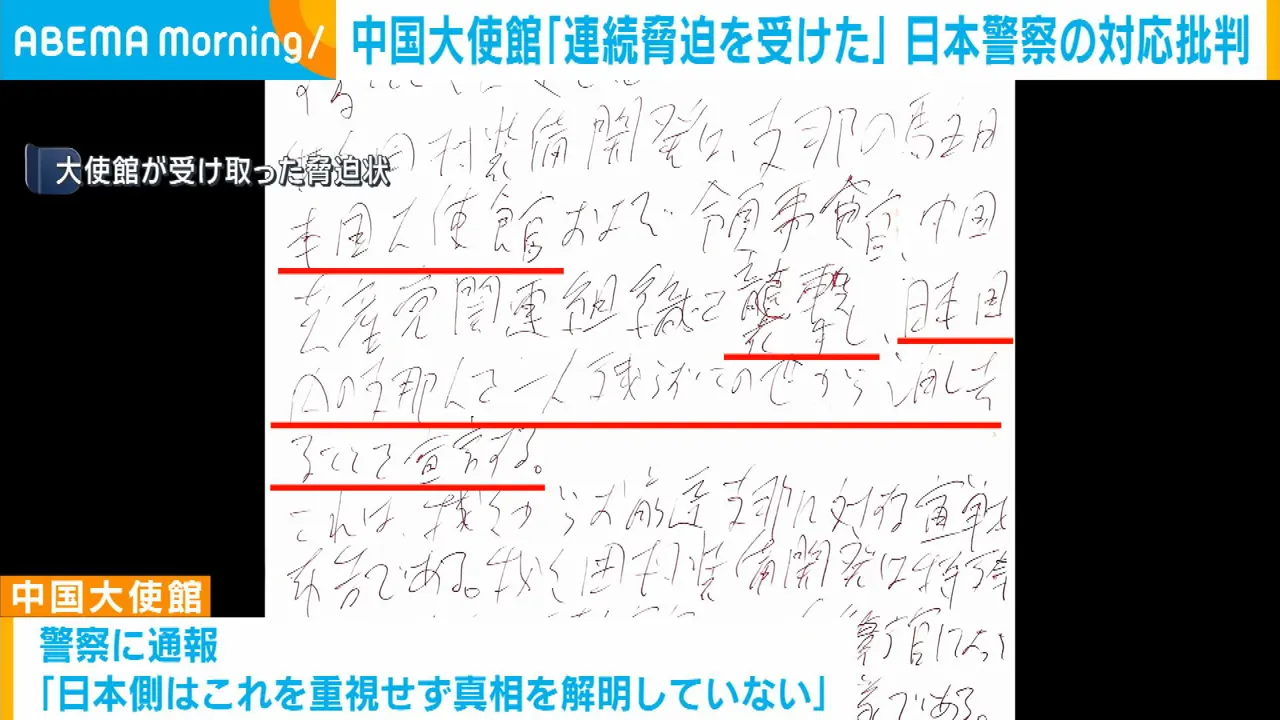 ABEMA Morning/
中国大使館「連続脅迫を受けた」 日本警察の対応批判
大使館が受け取った脅迫状
田村装備開発は、支那の駐日
本国大使館および領事館、中国
共産党関連組織を襲撃し、日本国
内の支那人を一人残らずこの世から消し去
ることを宣言する。
これは、我々からお前達支那に対する宣戦
布告である。我々田村装備開発は特殊
警察官によっ
である。
中国大使館
警察に通報
「日本側はこれを重視せず真相を解明していない」